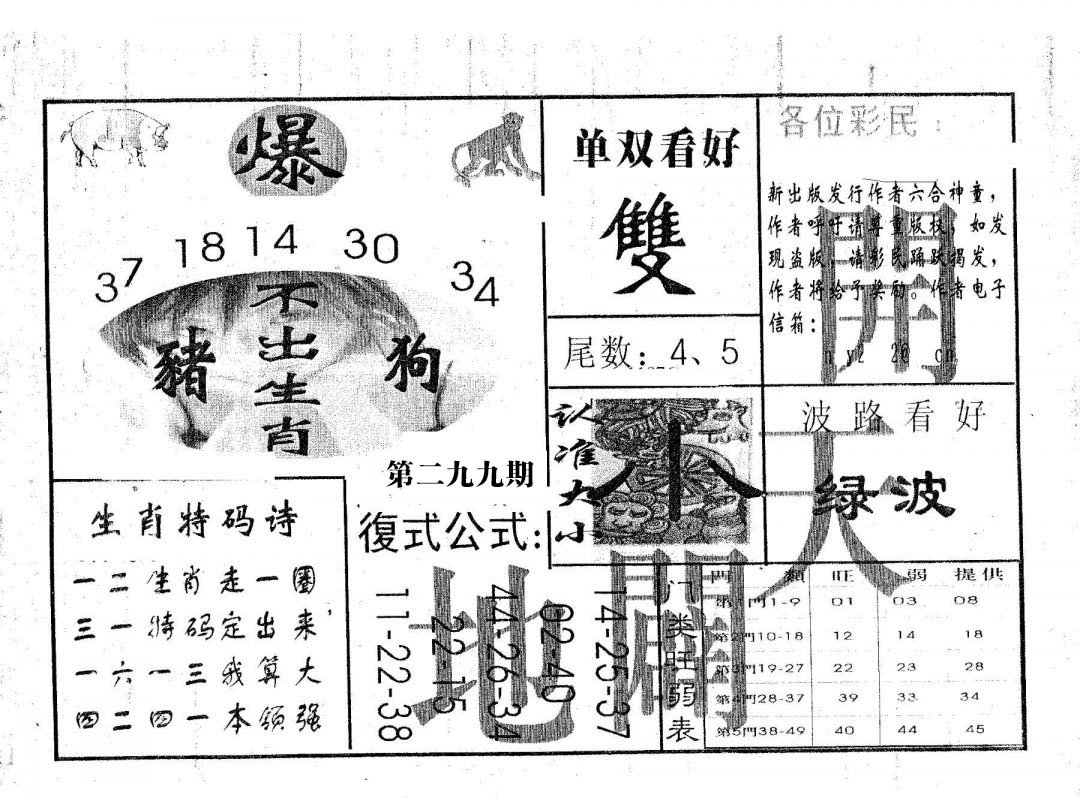 爆
37 18 14 30 34
不出生肖
豬
狗
第二九九期
单双看好
雙
尾数：4、5
各位彩民：
新出版发行作者六合神童，
作者呼吁请尊重版权，如发
现盗版，请彩民踊跃揭发，
作者将给予奖励。作者电子
信箱：
认准大小
小
波路看好
绿波
生肖特码诗
一二生肖走一圈
三一特码定出来，
一六一三我算大
四二四一本领强
復式公式:
11-22-38
22-15
44-26-34
02-40
14-25-37
天
地
開
開
门类旺弱表
門 類 旺 弱 提供
第1門1-9 01 03 08
第2門10-18 12 14 18
第3門19-27 22 23 28
第4門28-37 39 33 34
第5門38-49 40 44 45